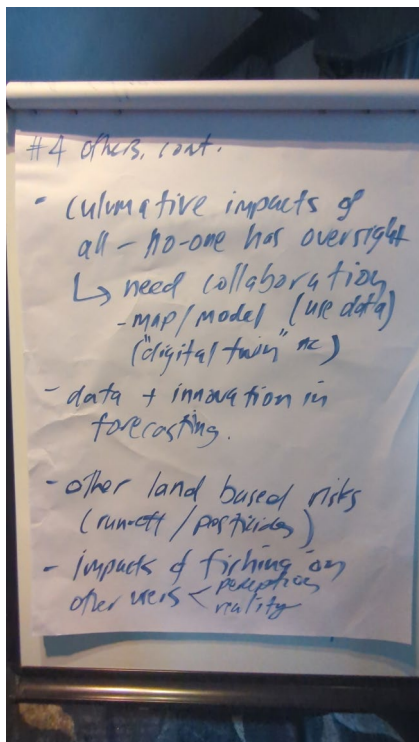 #4 others, cont.
- culumative impacts of
all - no-one has oversight
↳ need collaboration
- map/model (use data)
("digital twin" etc)
- data + innovation in
forecasting.
- other land based risks
(run-off / pesticides)
- impacts of fishing on
other users < perception
reality